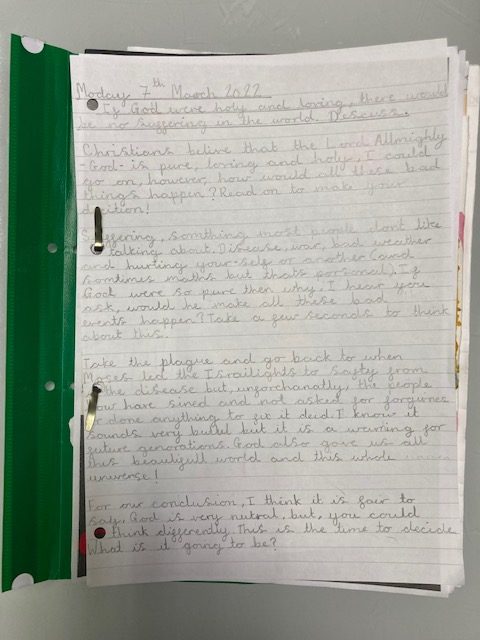 Moday 7th March 2022
If God were holy and loving, there would
be no suffering in the world. Discuss.
Christians belive that the Lord Allmighty
-God- is pure, loving and holy, I could
go on, however, how would all these bad
things happen? Read on to make your
desition!
Suffering, somthing most people dont like
talking about. Disease, war, bad weather
and hurting your-self or another (and
somtimes maths but thats personal). If
God were so pure then why, I hear you
ask, would he make all these bad
events happen? Take a few seconds to think
about this.
Take the plague and go back to when
Moses led the Israilights to safty from
the disease but, unforchanatly, the people
who have sined and not asked for forgivnes
or done anything to fix it deid. I know it
sounds very but it is a warning for
future generations. God also gave us all
this beautyfull world and this whole
universe!
For our conclusion, I think it is fair to
say, God is very nutral, but, you could
think differently. This is the time to decide
What is it going to be?